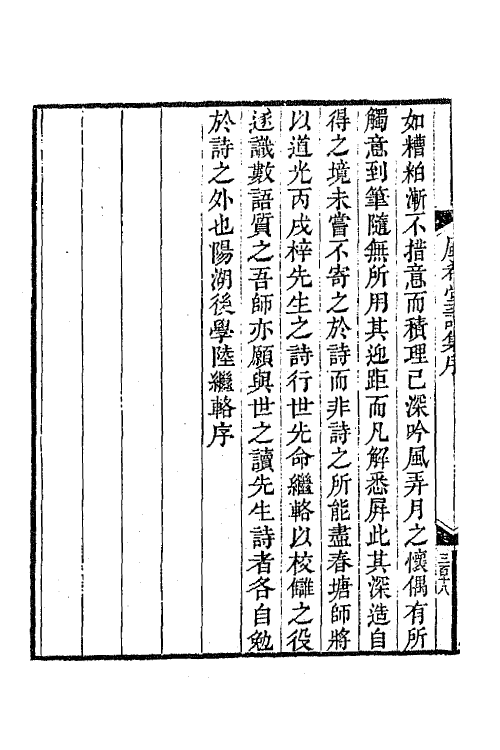 風希堂詩集序
三百十八
如糟粕漸不措意而積理已深吟風弄月之懷偶有所
觸意到筆隨無所用其迎距而凡解悉屏此其深造自
得之境未嘗不寄之於詩而非詩之所能盡春塘師將
以道光丙戌梓先生之詩行世先命繼輅以校讎之役
迷識數語質之吾師亦願與世之讀先生詩者各自勉
於詩之外也陽湖後學陸繼輅序